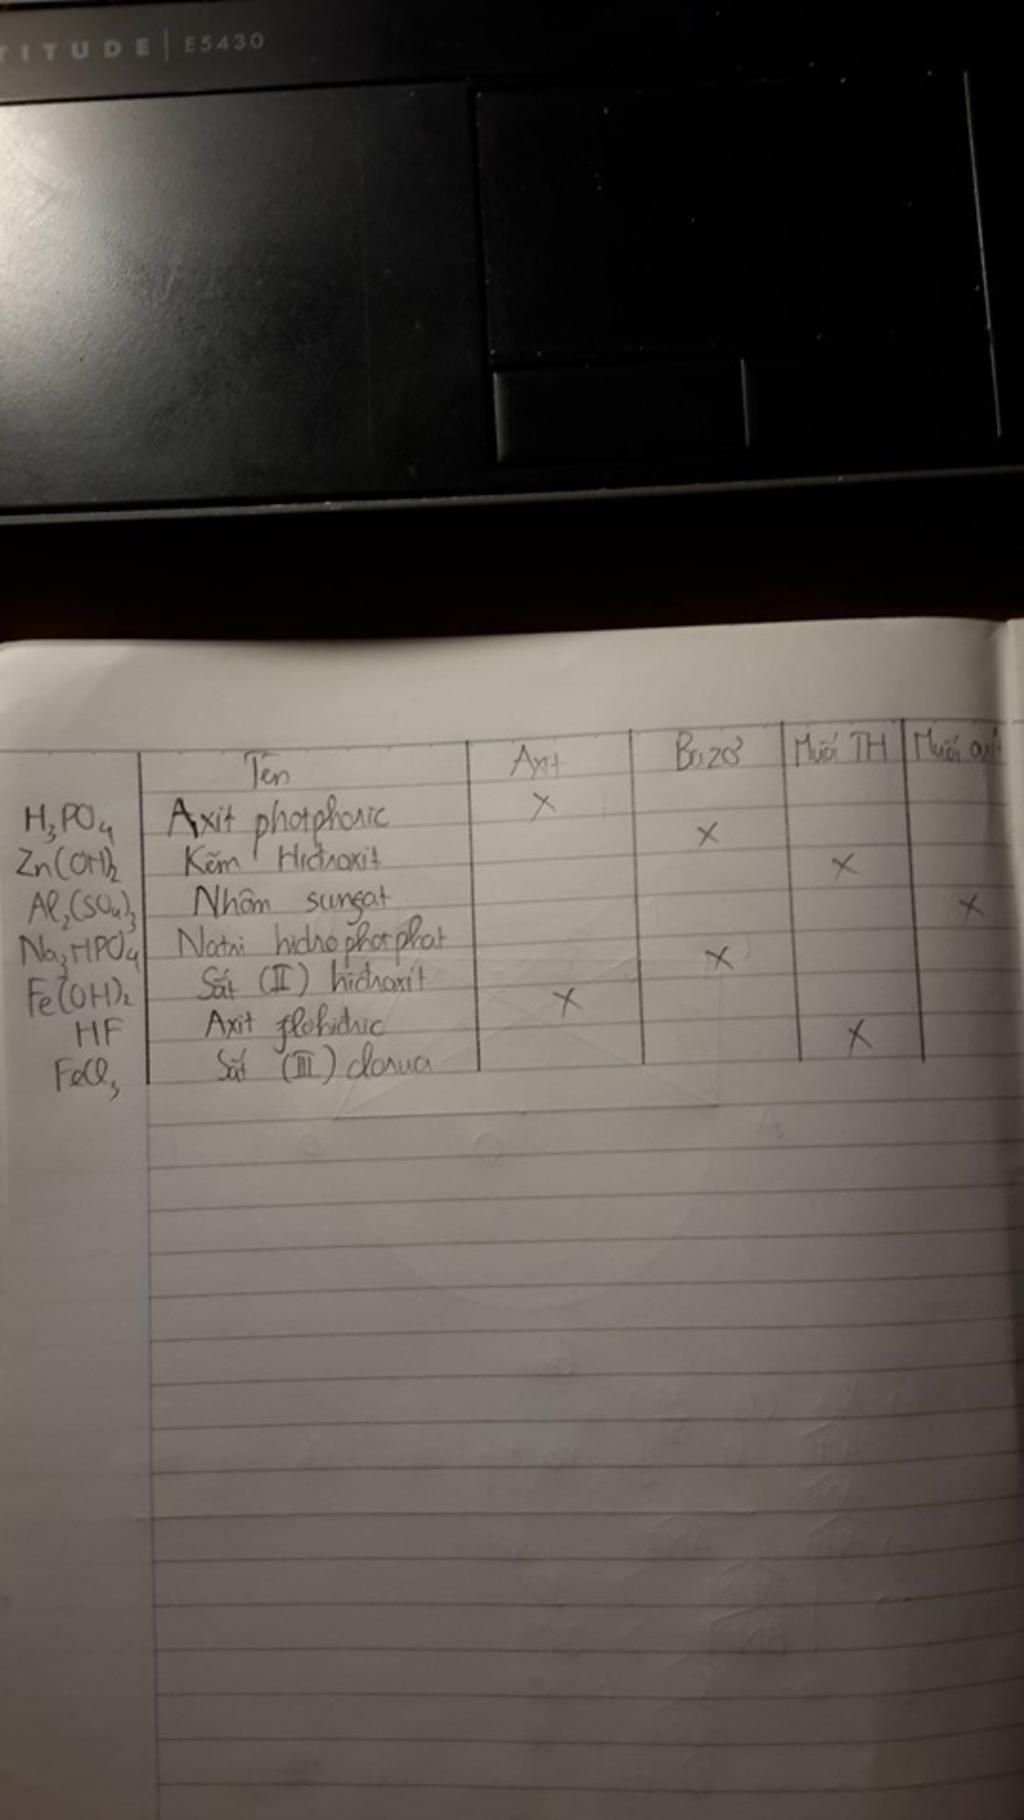 TITUDE | E5430
Tên Axit Bazơ Muối TH Muối
H₃PO₄ Axit photphoric X
Zn(OH)₂ Kẽm Hiđroxit X
Al₂(SO₄)₃ Nhôm sunfat X
Na₂HPO₄ Natri hiđrophotphat X
Fe(OH)₂ Sắt (II) hiđroxit X
HF Axit flohiđric X
FeCl₃ Sắt (III) clorua X